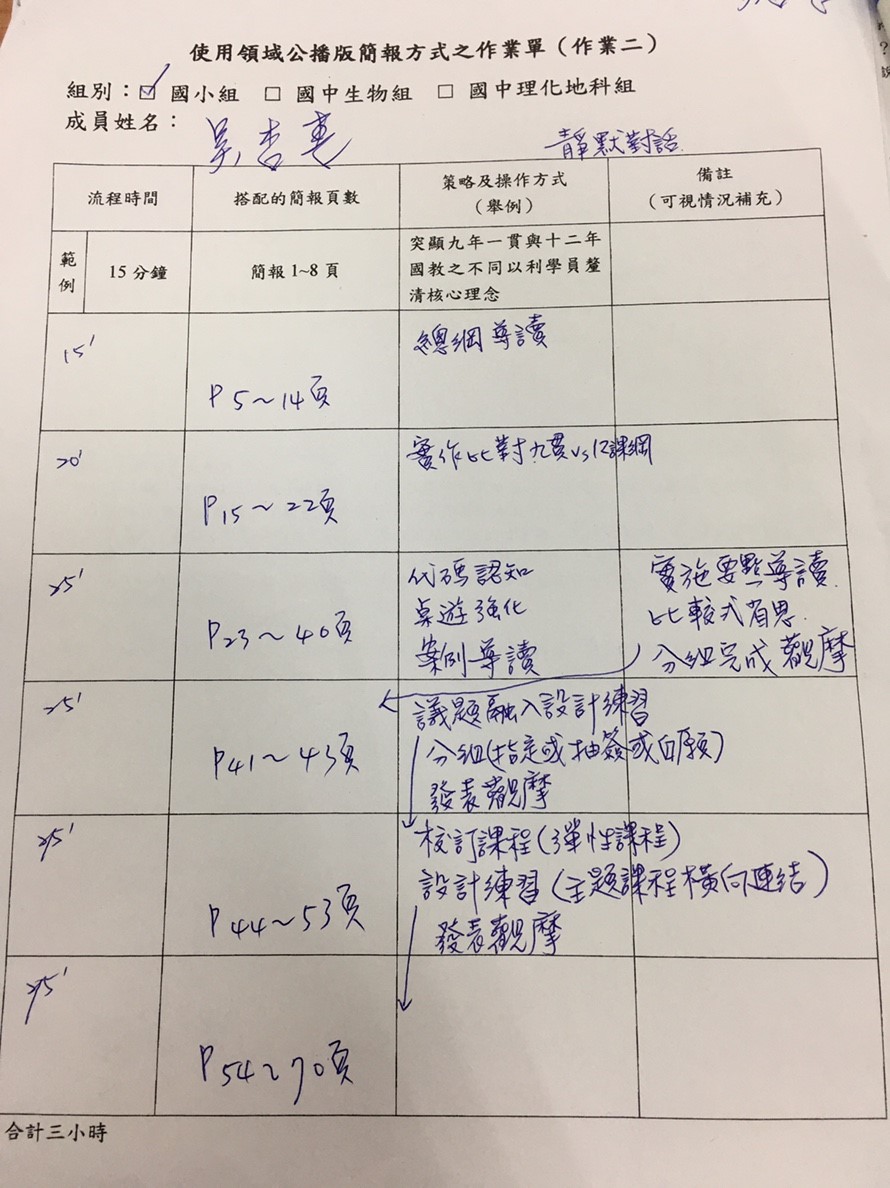 使用領域公播版簡報方式之作業單（作業二）
組別：☑ 國小組 □ 國中生物組 □ 國中理化地科組
成員姓名：
吳杏
靜默對話
流程時間 搭配的簡報頁數 策略及操作方式（舉例） 備註（可視情況補充）
範例 15分鐘 簡報1~8頁 突顯九年一貫與十二年
國教之不同以利學員釐
清核心理念
15' 總綱導讀
P5～14頁
20' 實作比對九貫vs12課綱
P15～22頁
25' 代碼認知 實施要點導讀
桌遊強化 比較式省思
P23～40頁 案例導讀 分組完成觀摩
25' 議題融入設計練習
P41～43頁 分組(指定或抽簽或自願)
發表觀摩
25' 校訂課程(彈性課程)
設計練習(主題課程橫向連結)
P44～53頁 發表觀摩
25'
P54～70頁
合計三小時